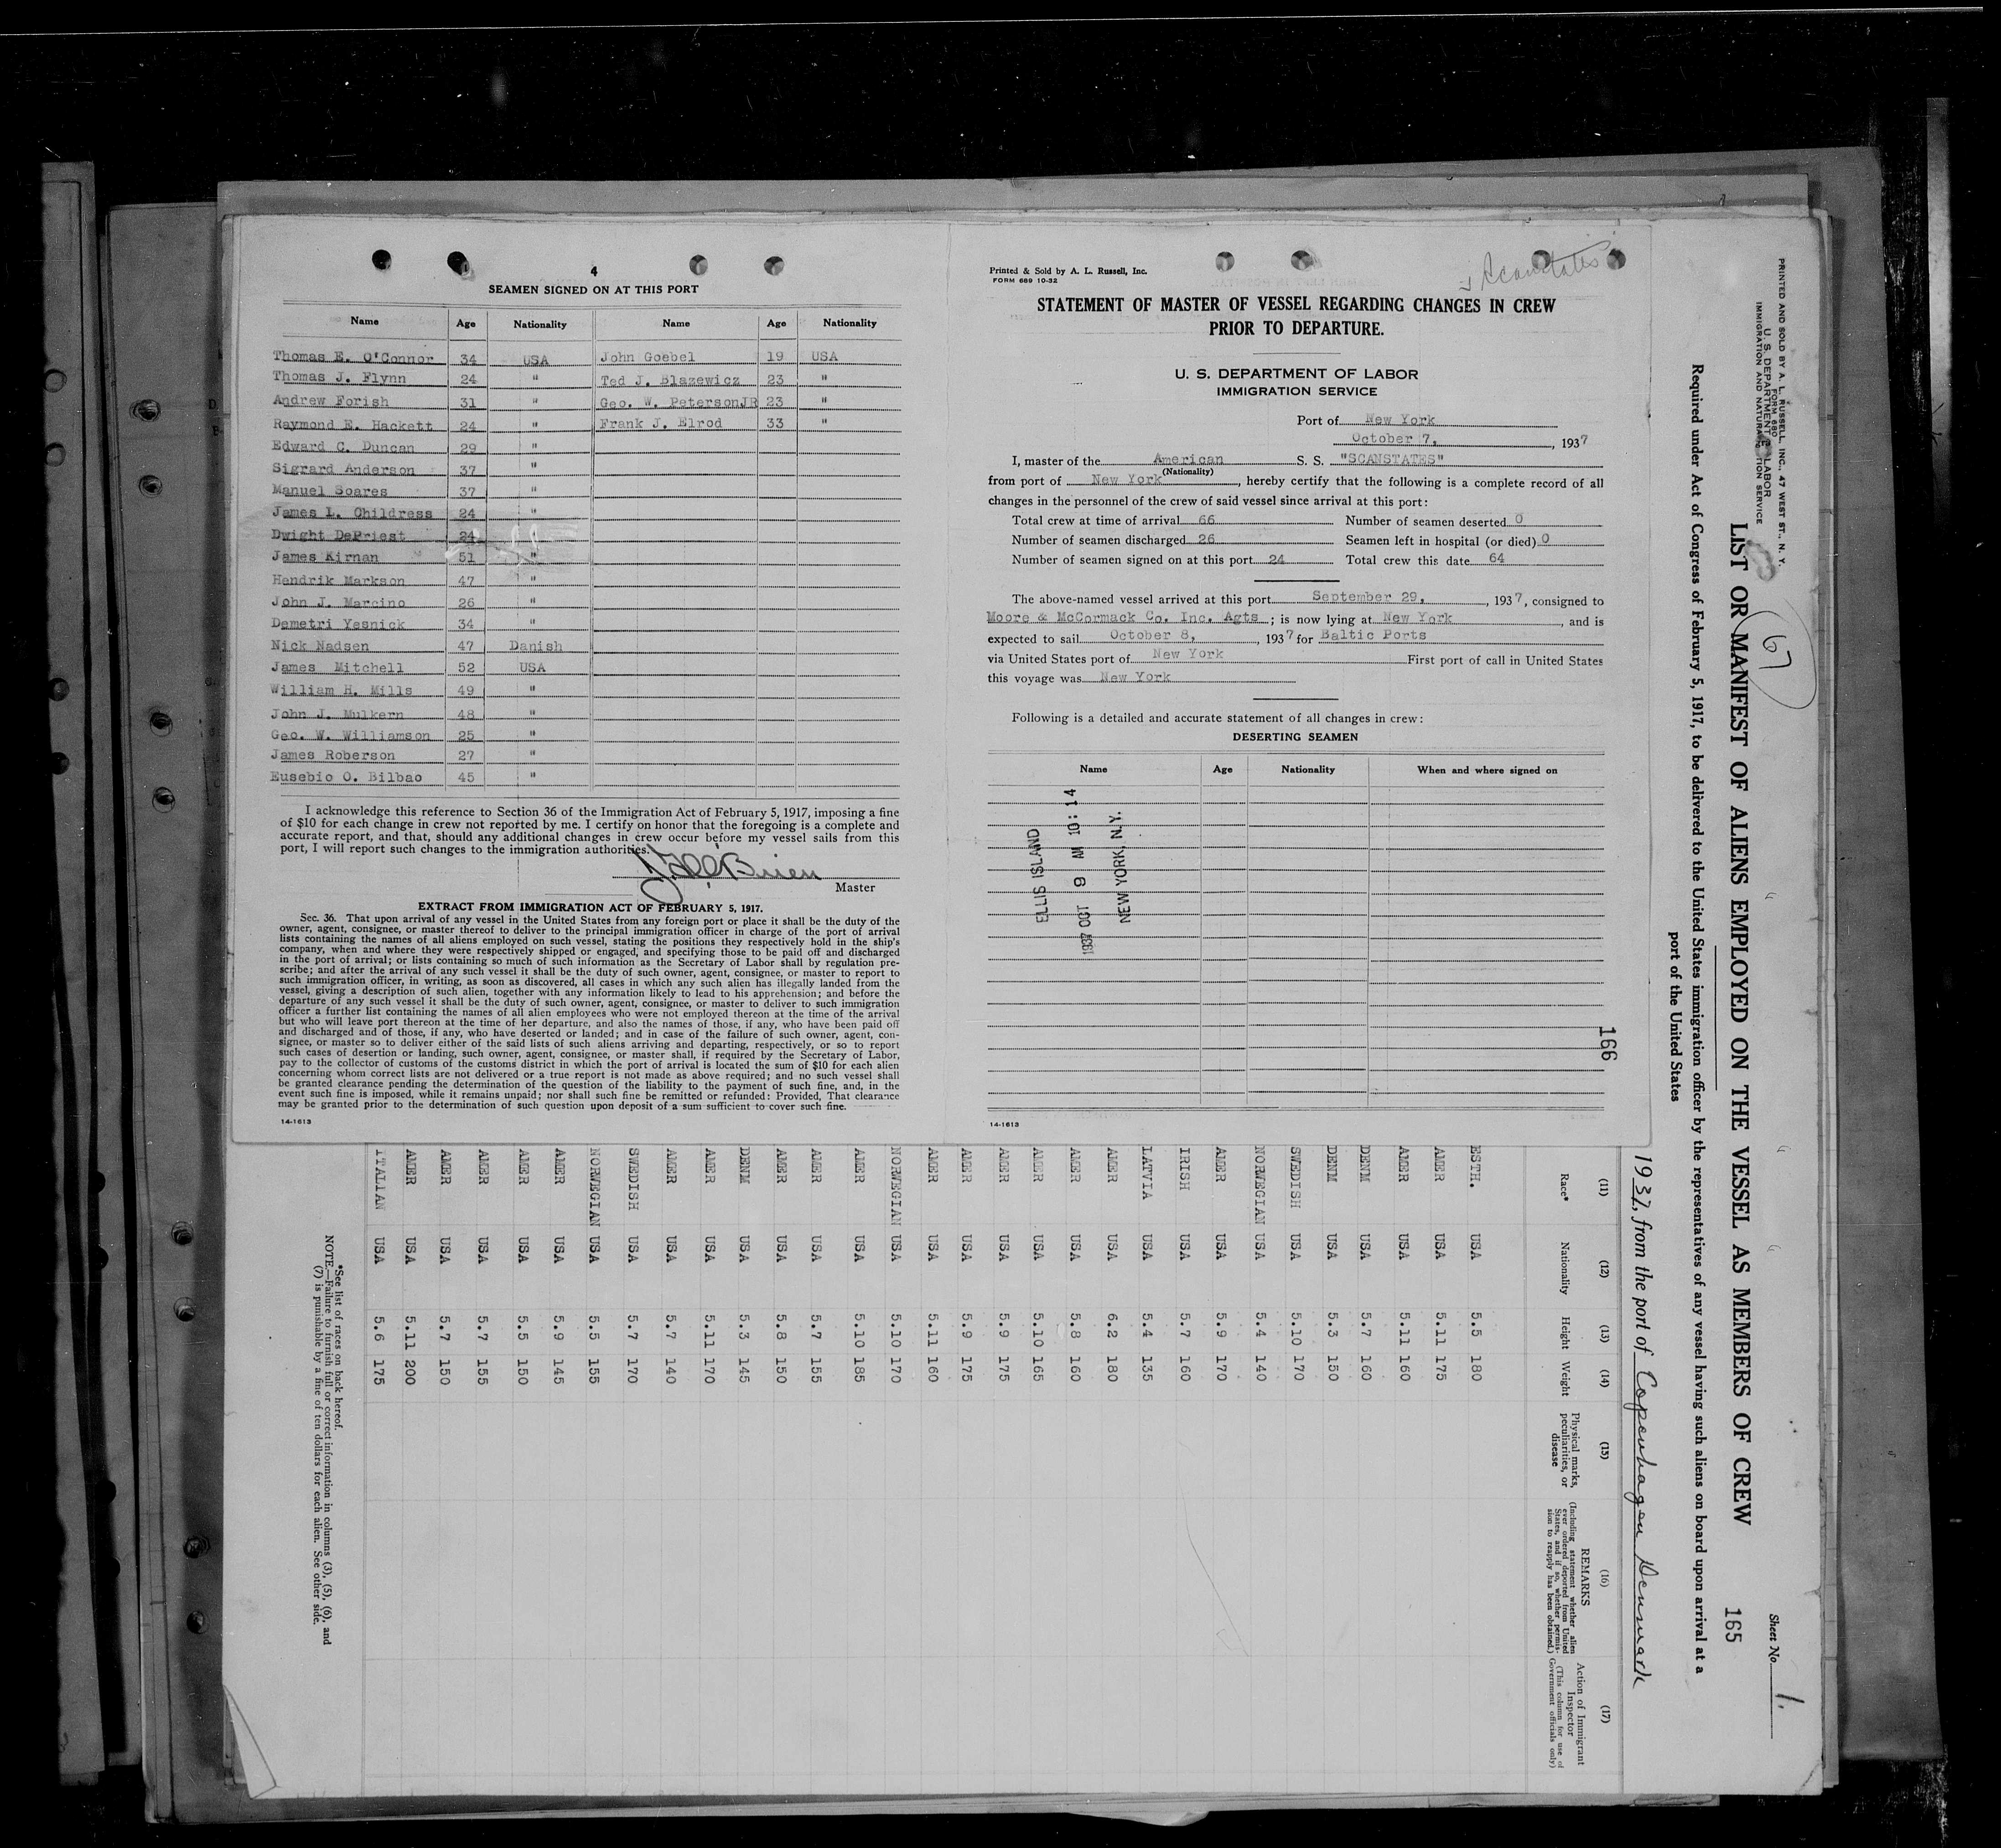 4
SEAMEN SIGNED ON AT THIS PORT
Name Age Nationality Name Age Nationality
Thomas E. O'Connor 34 USA John Goebel 19 USA
Thomas J. Flynn 24 " Ted J. Blazewicz 23 "
Andrew Forish 31 " Geo. W. PetersonJR 23 "
Raymond E. Hackett 24 " Frank J. Elrod 33 "
Edward C. Duncan 29 "
Sigrard Anderson 37 "
Manuel Soares 37 "
James L. Childress 24 "
Dwight DePriest 24
James Kirnan 51 "
Hendrik Markson 47 "
John J. Marcino 26 "
Demetri Yesnick 34 "
Nick Nadsen 47 Danish
James Mitchell 52 USA
William H. Mills 49 "
John J. Mulkern 48 "
Geo. W. Williamson 25 "
James Roberson 27 "
Eusebio O. Bilbao 45 "
I acknowledge this reference to Section 36 of the Immigration Act of February 5, 1917, imposing a fine
of $10 for each change in crew not reported by me. I certify on honor that the foregoing is a complete and
accurate report, and that, should any additional changes in crew occur before my vessel sails from this
port, I will report such changes to the immigration authorities.
O'Brien
Master
EXTRACT FROM IMMIGRATION ACT OF FEBRUARY 5, 1917.
Sec. 36. That upon arrival of any vessel in the United States from any foreign port or place it shall be the duty of the
owner, agent, consignee, or master thereof to deliver to the principal immigration officer in charge of the port of arrival
lists containing the names of all aliens employed on such vessel, stating the positions they respectively hold in the ship's
company, when and where they were respectively shipped or engaged, and specifying those to be paid off and discharged
in the port of arrival; or lists containing so much of such information as the Secretary of Labor shall by regulation pre-
scribe; and after the arrival of any such vessel it shall be the duty of such owner, agent, consignee, or master to report to
such immigration officer, in writing, as soon as discovered, all cases in which any such alien has illegally landed from the
vessel, giving a description of such alien, together with any information likely to lead to his apprehension; and before the
departure of any such vessel it shall be the duty of such owner, agent, consignee, or master to deliver to such immigration
officer a further list containing the names of all alien employees who were not employed thereon at the time of the arrival
but who will leave port thereon at the time of her departure, and also the names of those, if any, who have been paid off
and discharged and of those, if any, who have deserted or landed; and in case of the failure of such owner, agent, con-
signee, or master so to deliver either of the said lists of such aliens arriving and departing, respectively, or so to report
such cases of desertion or landing, such owner, agent, consignee, or master shall, if required by the Secretary of Labor,
pay to the collector of customs of the customs district in which the port of arrival is located the sum of $10 for each alien
concerning whom correct lists are not delivered or a true report is not made as above required; and no such vessel shall
be granted clearance pending the determination of the question of the liability to the payment of such fine, and, in the
event such fine is imposed, while it remains unpaid; nor shall such fine be remitted or refunded: Provided, That clearance
may be granted prior to the determination of such question upon deposit of a sum sufficient to cover such fine.
14-1613
Printed & Sold by A. L. Russell, Inc.
FORM 689 10-32
Scanstates
STATEMENT OF MASTER OF VESSEL REGARDING CHANGES IN CREW
PRIOR TO DEPARTURE.
U. S. DEPARTMENT OF LABOR
IMMIGRATION SERVICE
Port of New York
October 7, 1937
I, master of the American S. S. "SCANSTATES"
(Nationality)
from port of New York, hereby certify that the following is a complete record of all
changes in the personnel of the crew of said vessel since arrival at this port:
Total crew at time of arrival 66 Number of seamen deserted 0
Number of seamen discharged 26 Seamen left in hospital (or died) 0
Number of seamen signed on at this port 24 Total crew this date 64
The above-named vessel arrived at this port September 29, 1937, consigned to
Moore & McCormack Co. Inc. Agts; is now lying at New York, and is
expected to sail October 8, 1937 for Baltic Ports
via United States port of New York First port of call in United States
this voyage was New York
Following is a detailed and accurate statement of all changes in crew:
DESERTING SEAMEN
Name Age Nationality When and where signed on
ELLIS ISLAND
1937 OCT 8 AM 10:14
NEW YORK, N.Y.
166
14-1613
PRINTED AND SOLD BY A. L. RUSSELL, INC., 47 WEST ST., N. Y.
FORM 680
U. S. DEPARTMENT OF LABOR
IMMIGRATION AND NATURALIZATION SERVICE
67
Sheet No. 1.
165
LIST OR MANIFEST OF ALIENS EMPLOYED ON THE VESSEL AS MEMBERS OF CREW
Required under Act of Congress of February 5, 1917, to be delivered to the United States immigration officer by the representatives of any vessel having such aliens on board upon arrival at a
port of the United States
1937, from the port of Copenhagen Denmark
(11) (12) (13) (14) (15) (16) (17)
Race* Nationality Height Weight
Physical marks, peculiarities, or disease
REMARKS
(Including statement whether alien ever ordered deported from United States, and if so, whether permission to reapply has been obtained.)
Action of Immigrant Inspector
(This column for use of Government officials only)
ESTH. USA 5.5 180
AMER USA 5.11 175
AMER USA 5.11 160
DENM USA 5.7 160
DENM USA 5.3 150
SWEDISH USA 5.10 170
NORWEGIAN USA 5.4 140
AMER USA 5.9 170
IRISH USA 5.7 160
LATVIA USA 5.4 135
AMER USA 6.2 180
AMER USA 5.8 160
AMER USA 5.10 165
AMER USA 5.9 175
AMER USA 5.9 175
AMER USA 5.11 160
NORWEGIAN USA 5.10 170
AMER USA 5.10 185
AMER USA 5.7 155
AMER USA 5.8 150
DENM USA 5.3 145
AMER USA 5.11 170
AMER USA 5.7 140
SWEDISH USA 5.7 170
NORWEGIAN USA 5.5 155
AMER USA 5.9 145
AMER USA 5.5 150
AMER USA 5.7 155
AMER USA 5.7 150
AMER USA 5.11 200
ITALIAN USA 5.6 175
*See list of races on back hereof.
NOTE.—Failure to furnish full or correct information in columns (3), (5), (6), and
(7) is punishable by a fine of ten dollars for each alien. See other side.